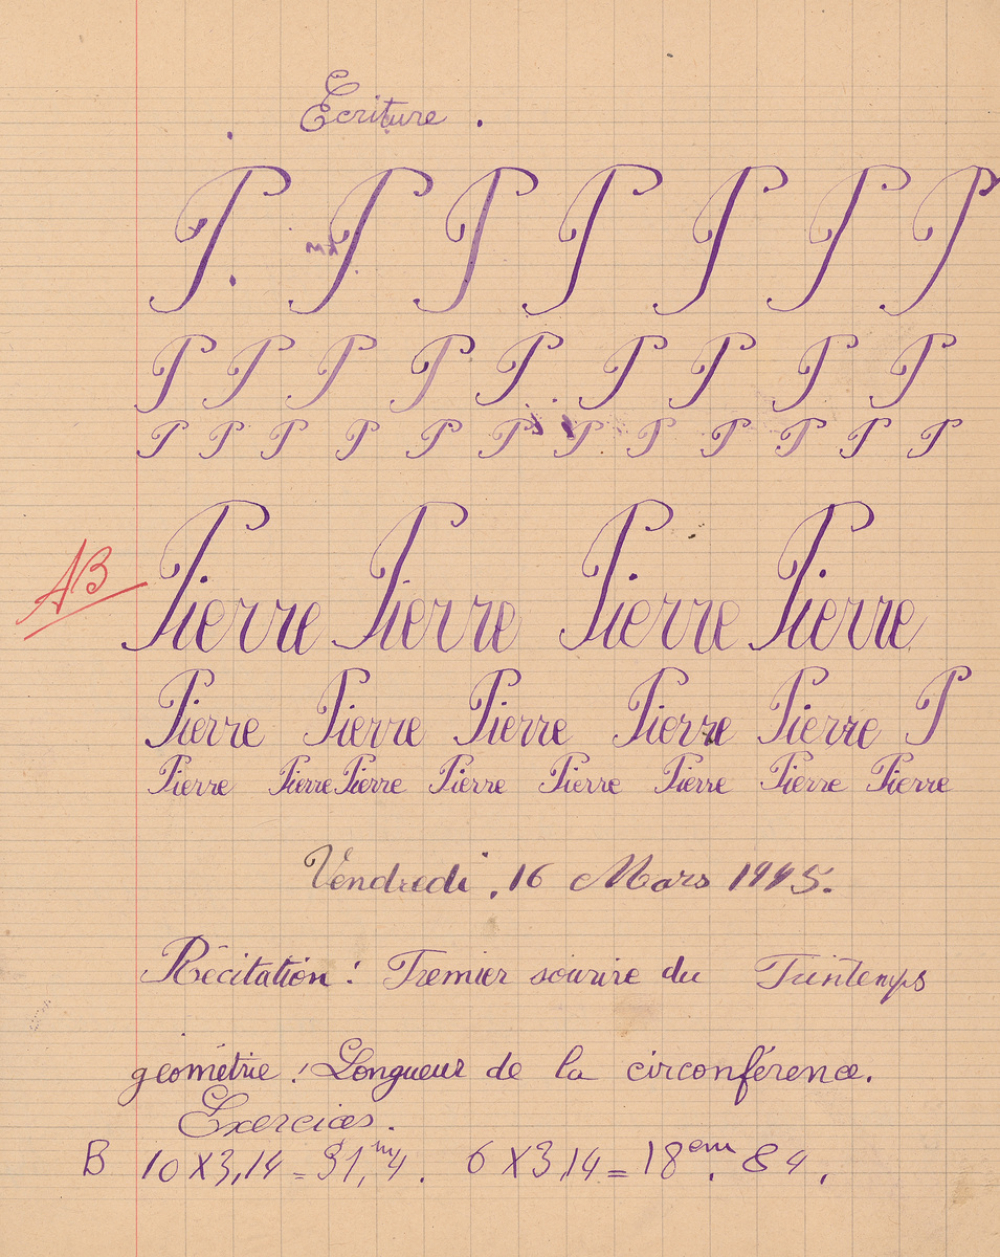 Ecriture.
P P P P P P P
P P P P P P P P P
P P P P P P P P P P P P
AB
Pierre Pierre Pierre Pierre
Pierre Pierre Pierre Pierre Pierre P
Pierre Pierre Pierre Pierre Pierre Pierre Pierre Pierre
Vendredi, 16 Mars 1945.
Récitation : Premier sourire du Printemps
géométrie : Longueur de la circonférence.
Exercices.
B 10 X 3,14 = 31,m4. 6 X 3,14 = 18cm, 84.